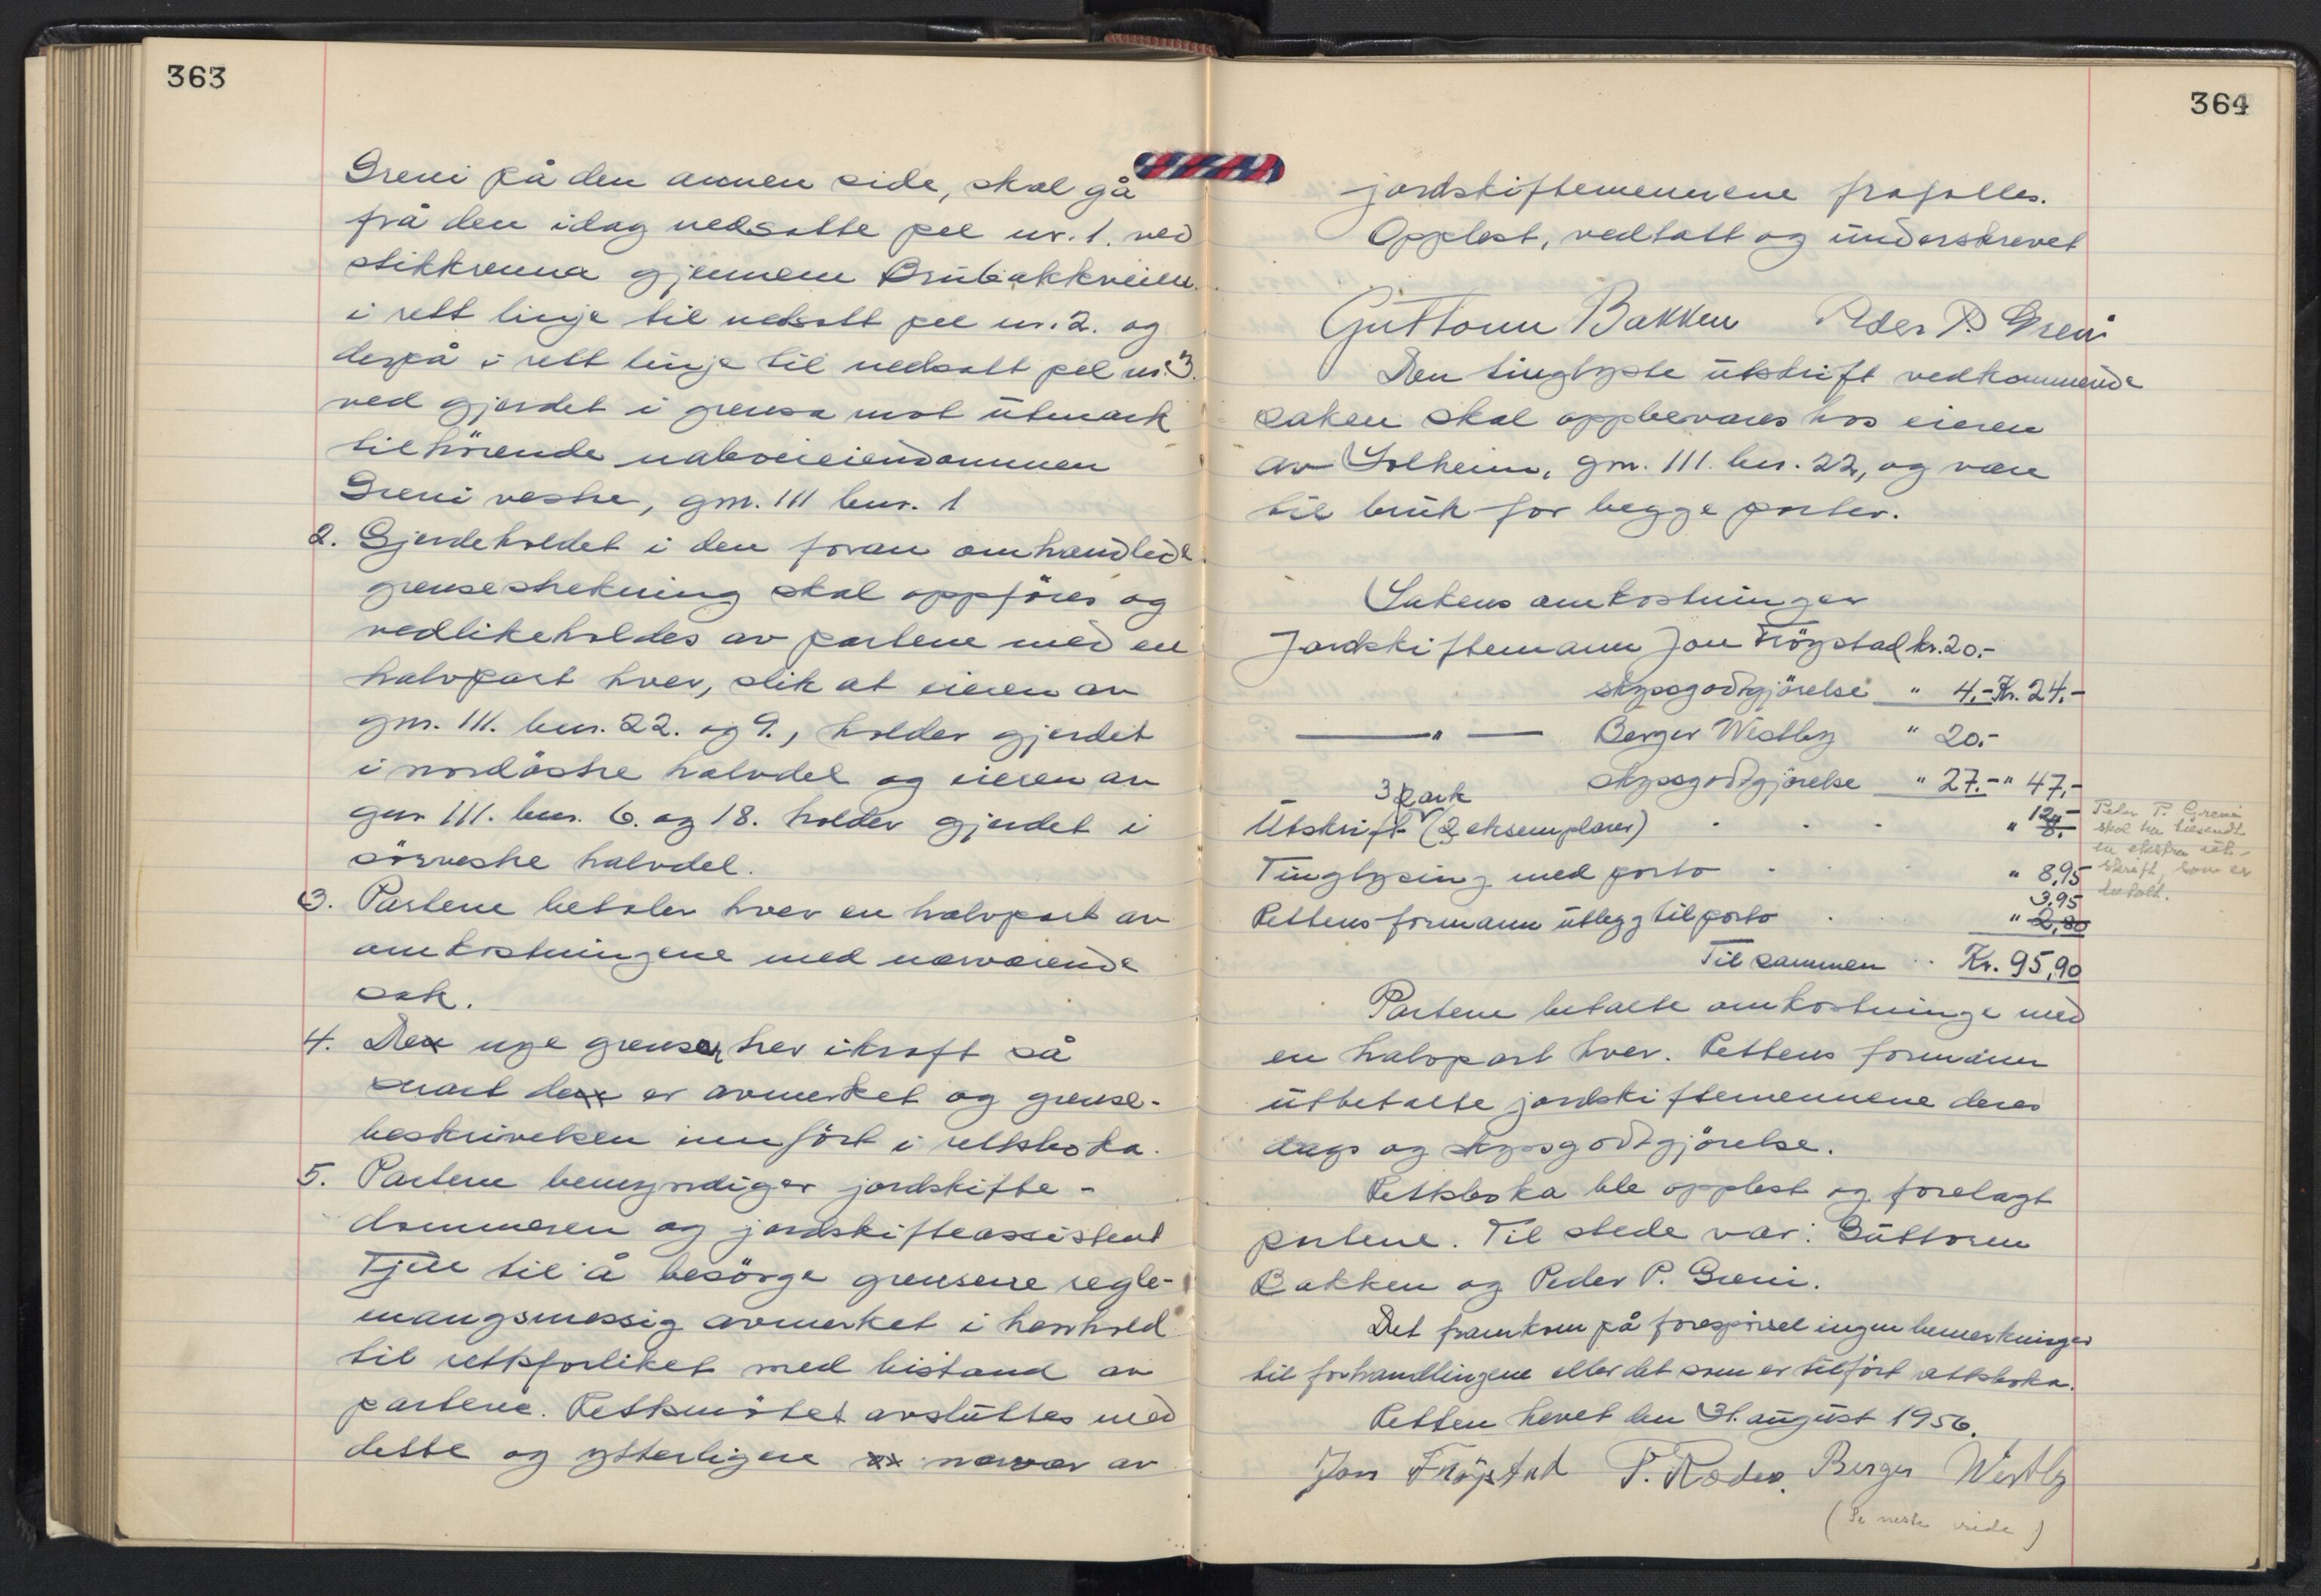 363
Greni på den annen side, skal gå
frå den idag nedsatte pel nr. 1. ved
stikkrenna gjennem Brubakkveien.
i rett linje til nedsatt pel nr. 2. og
derpå i rett linje til nedsatt pel nr. 3.
ved gjerdet i grensa mot utmark
tilhörende naboeieiendommen
Greni vestre, gnr. 111 bnr. 1
2. Gjerdeholdet i den foran omhandlede
grensestrekning skal oppföres og
vedlikeholdes av partene med en
halvpart hver, slik at eieren av
gnr. 111. bnr. 22. og 9., holder gjerdet
i nordöstre halvdel og eieren av
gnr 111. bnr. 6. og 18. holder gjerdet i
sörvestre halvdel.
3. Partene betaler hver en halvpart av
omkostningene med nærværende
sak.
4. De nye grenser trer ikraft så
snart de er avmerket og grense-
beskrivelsen innfört i rettsboka.
5. Partene bemyndiger jordskifte-
dommeren og jordskifteassistent
Tjen til å besörge grensene regle-
mangsmessig avmerket i henhold
til rettsforliket med bistand av
partene. Rettsmötet avsluttes med
dette og ytterligere nærvær av
364
jordskiftemennene frafalles.
Opplest, vedtatt og underskrevet
Guttorm Bakken Peder P. Greni
Den tinglyste utskrift vedkommende
saken skal oppbevares hos eieren
av Solheim, gnr. 111. bnr. 22, og være
til bruk for begge parter.
Sakens omkostninger
Jordskiftemann Jon Frögstad kr. 20.-
skyssgodtgjörelse " 4.- Kr. 24.-
— " — Berger Westby " 20.-
skyssgodtgjörelse " 27.- " 47,-
3 ark
Utskrift (2 eksemplarer) . . . " 12,-
Tinglysing med porto . . " 8,95
3,95
Rettens formann utlegg til porto . . " 2,80
Tilsammen .. Kr. 95,90
Peder P. Greni
skal ha tilsendt
en ekstra ut-
skrift, som er
betalt.
Partene betalte omkostninge med
en halvpart hver. Rettens formann
utbetalte jordskiftemennene deres
dags og skyssgodtgjörelse.
Rettsboka ble opplest og forelagt
partene. Til stede var: Guttorm
Bakken og Peder P. Greni.
Det framkom på forespörsel ingen bemerkninger
til forhandlingene eller det som er tilfört rettsboka.
Retten hevet den 31. august 1956.
Jon Frögstad P. Roder. Berger Westby
(Se neste side)